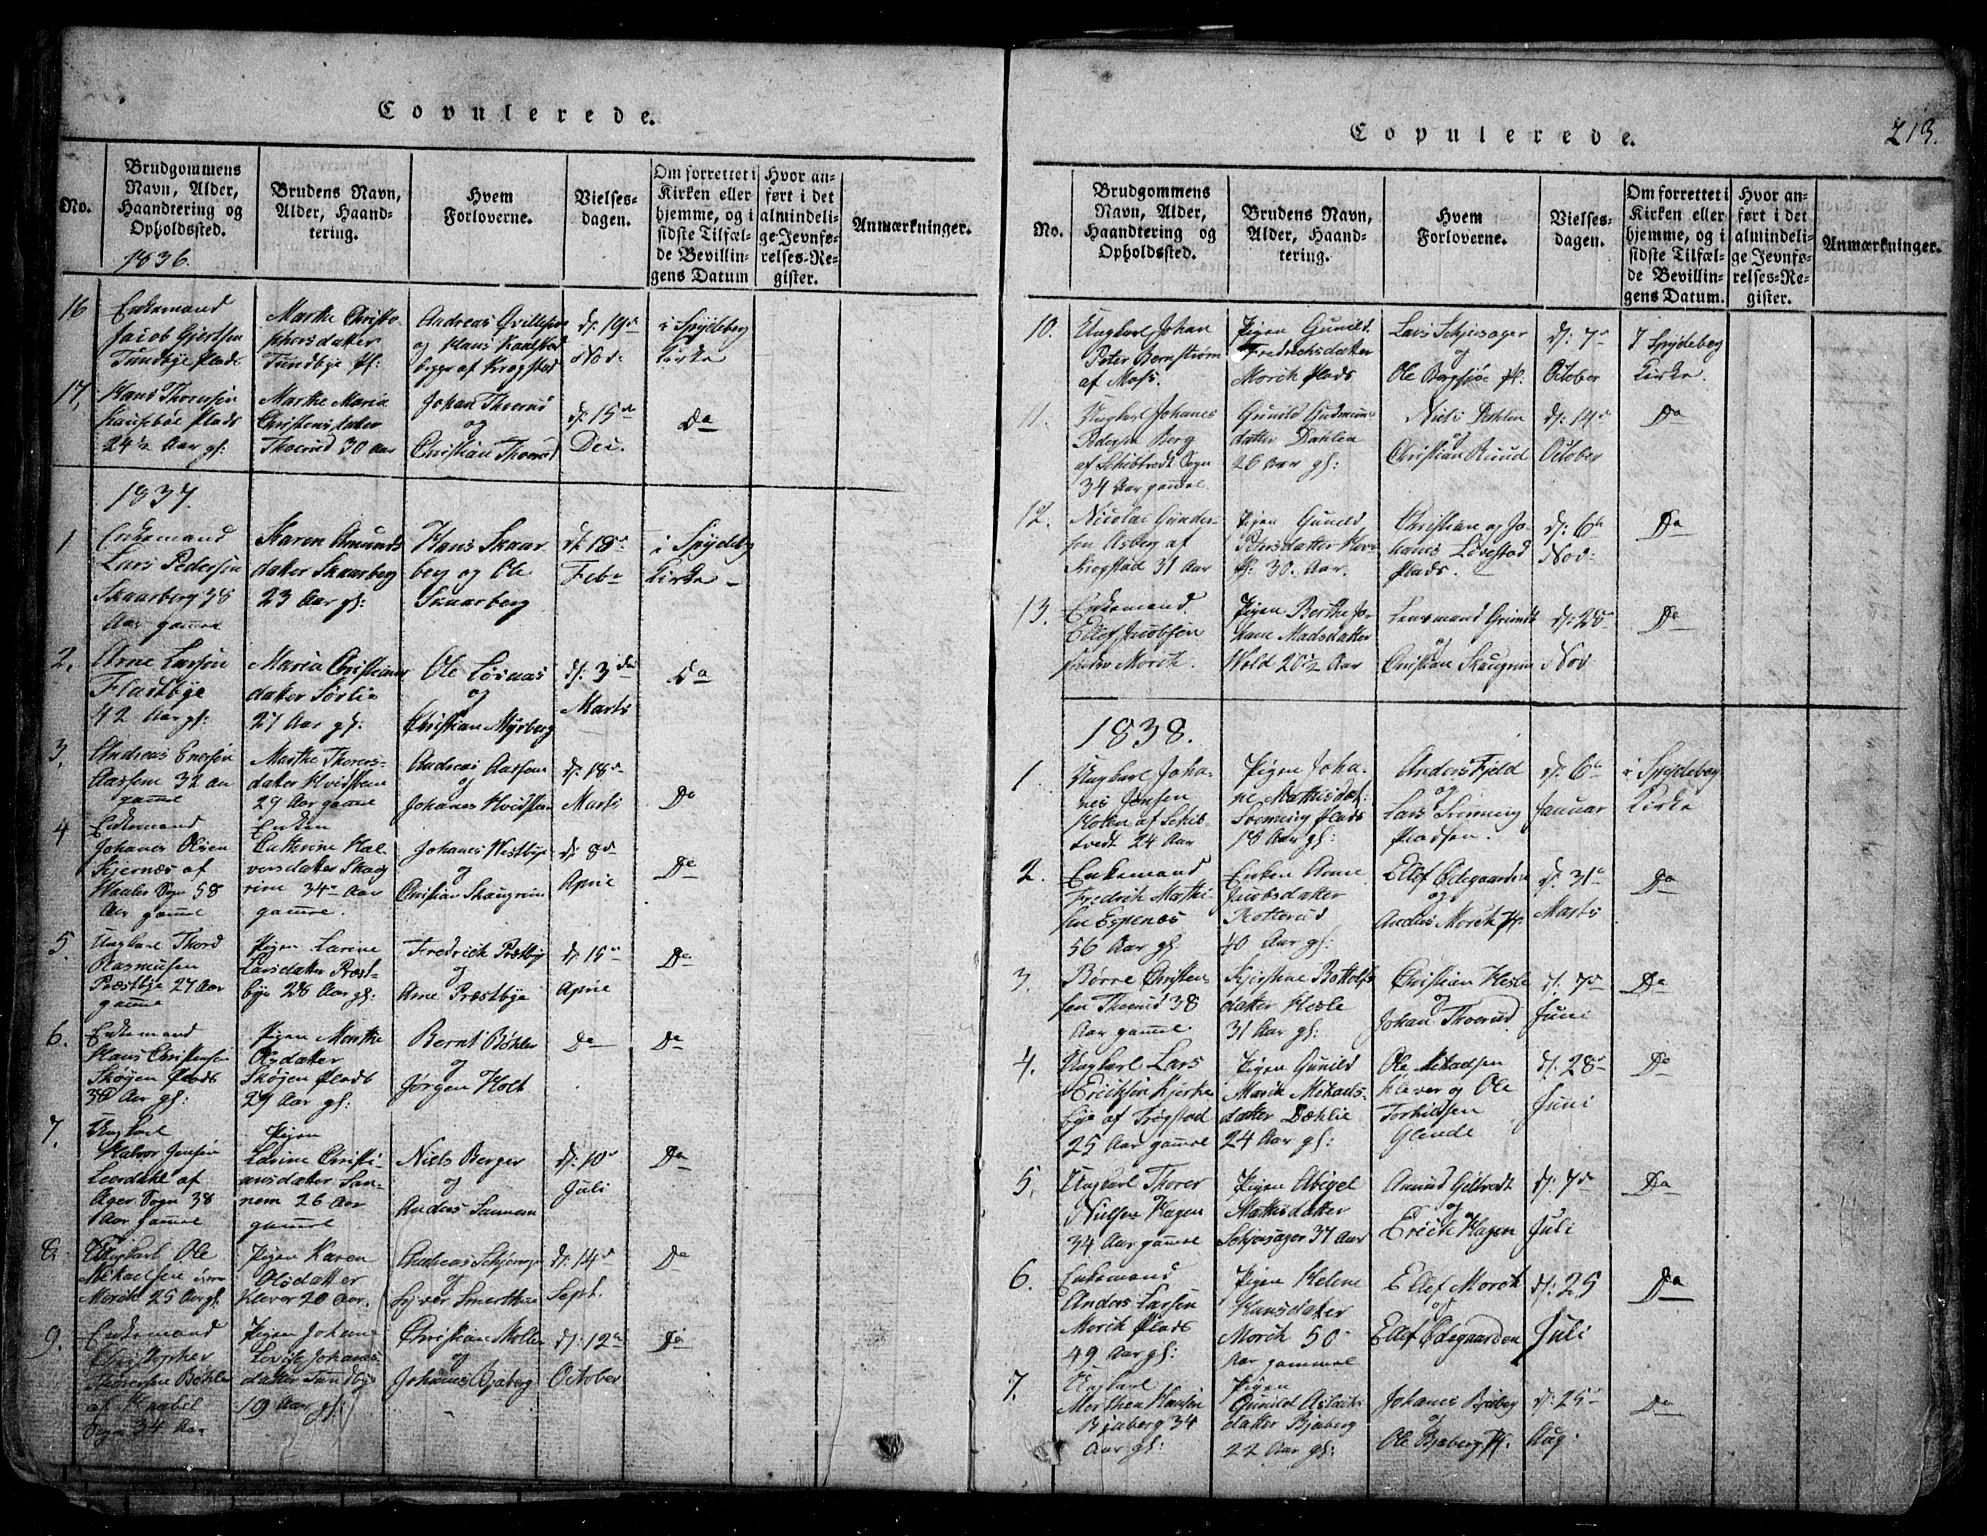 Copulerede.
No.
Brudgommens
Navn, Alder,
Haandtering og
Opholdssted.
1836.
Brudens Navn,
Alder, Haand-
tering.
Hvem
Forloverne.
Vielses-
dagen.
Om forrettet i
Kirken eller
hjemme, og i
sidste Tilfæl-
de Bevillin-
gens Datum
Hvor an-
ført i det
almindeli-
ge Jevnfø-
relses-Re-
gister.
Anmærkninger.
16
Enkemand
Jacob Gjertsen
Tundbye Plads
Marthe Christo-
phersdatter
Tundbye Pl:
Andreas
og Hans
af Krogstad
d: 19de
Nov:
i Spydeberg
Kirke
17,
Hans Thoresen
Plads
24½ Aar gl:
Marthe Maria
Christensdatter
Thoerud 30 aar
Johan Thoerud
og
Christian Thoerud
d: 15de
Dec.
Do
1837.
1
Enkemand
Lars Pedersen
Skaarberg 38
Aar gamle
Karen Amunds
datter Skaarberg
23 Aar gl:
Hans Skaar
berg og Ole
Skaarberg
d: 18de
Febr
i Spydeberg
Kirke
2.
Arne Larsen
Fladbye
42 Aar gl:
Maria Christians
datter Sørlie
27 Aar gl:
Ole Løvaas
og
Christian Myrberg
d: 3die
Marts
Do
3.
Andreas Enersen
Aassem 32 aar
gamle
Marthe Thorers-
datter Hvidsteen
29 Aar gamle
Andreas Aassem
og
Johanes Hvidsteen
d: 18de
Marts
Do
4
Enkemand
Johanes Olsen
Kjernæs af
Waaler Sogn 58
Aar gamle
Enken
Cathrine Hal
vorsdatter Skog
rim 34 Aar
gamle.
Johanes Westbye
og
Christian Skaugrim
d: 8de
April
Do
5.
Ungkarl Thord
Rasmusen
Præstbye 27 Aar
gamle
Pigen Larine
Larsdatter Præst-
bye 28 Aar gl:
Fredrich Præstbye
og
Arne Præstbye
d: 15de
April
Do
6.
Enkemand
Hans Christensen
Skøjen Plads
30 Aar gl:
Pigen Marthe
Olsdatter
Skøjen Plads
29 Aar gl:
Bernt Bøhler
og
Jørgen Holt
Do
Do
7.
Ungkarl
Halvor Jensen
af
Ager Sogn 38
Aar gamle
Pigen
Larine Christi-
ansdatter San-
nem 26 Aar
gamle
Niels Berger
og
Anders Sannem
d: 10de
Juli
Do
8.
Ungkarl Ole
Mikaelsen
Morth 25 Aar gl.
Pigen Karen
Olsdatter
Klever 20 Aar.
Andreas
og
Syver
d: 14de
Sept.
Do
9.
Enkemand
Christopher
Thoresen Bøhler
af
Sogn 34 Aar
Pigen Johane
Johanes-
datter Tundbye
19 Aar gl:
Christian Molte
og
Johanes Bjaberg
d: 12te
October
Do
Copulerede.
213.
No.
Brudgommens
Navn, Alder,
Haandtering og
Opholdssted.
Brudens Navn,
Alder, Haand-
tering.
Hvem
Forloverne.
Vielses-
dagen.
Om forrettet i
Kirken eller
hjemme, og i
sidste Tilfæl-
de Bevillin-
gens Datum.
Hvor an-
ført i det
almindeli-
ge Jevnfø-
relses-Re-
gister.
Anmærkninger.
10.
Ungkarl Johan
Peter Bernstrøm
af Moss.
Pigen Gunild
Fredrichsdatter
Morth Plads
Lars Schjersager
og
Ole Bergsjøe Pl.
d: 7de
October
I Spydeberg
Kirke.
11.
Ungkarl Johanes
Pedersen Berg
af Schibtvedt Sogn
34 Aar gamel.
Gunild Gudmuns
datter Dahlen
26 Aar gl:
Niels Dahlen
og
Christian Ruud
d: 14de
October
Do
12.
Nicolai Gunder-
sen Asberg af
Trogstad 31 Aar
Pigen Gunild
Petersdatter
Pl. 30. Aar.
Christian og Jo-
hanes Løvestad
Plads.
d: 6te
Nov:
Do
13.
Enkemand
Ellef Jacobsen
Morth.
Pigen Berthe Jo-
hane Madsdatter
Wold 20½ Aar
Lensmand Grundt
og
Christian Skaugrim
d: 28de
Nov
Do
1838.
1
Ungkarl Joha-
nes Jensen
Holen af Schib-
tvedt 24 Aar
Pigen Joha-
ne Mathisdat:
Svenning Plads
18 Aar gl:
Anders Fjeld
og
Lars Svenning
Pladsen.
d: 6te
Januar
i Spydeberg
Kirke
2.
Enkemand
Fredrik Mathi
sen Espenæs
56 Aar gl:
Enken Anne
Jacobsdatter
Kotterud
40 Aar gl:
Ellef Ødegaarden
og
Anders Morth Pl.
d: 31te
Marts
Do
3.
Børre Christen-
sen Thoerud 38
Aar gamel.
Kjerstine Bottolfs
datter Hesle
31 Aar gl:
Christian Hesle
og
Johan Thoerud
d: 7de
Juni
Do
4.
Ungkarl Lars
Erichsen Kjerke
bye af Trøgstad
25 Aar gamel
Pigen Gunild
Marie Mikaels-
datter Dæhlie
24 Aar gl:
Ole Mikaelsen
Klever og Ole
Torkildsen
Glende
d: 28de
Juni
Do
5.
Ungkarl Thorer
Nielsen Hagen
34 Aar gamel
Pigen Abigel
Mathisdatter
Schjersager 37 Aar
Amund Giltvedt
og
Erich Hagen
d: 7de
Juli
Do
6.
Enkemand
Anders Larsen
Morth Plads
49 Aar gl:
Pigen Helene
Hansdatter
Morth 50
Aar gammel
Ellef Morth
og
Ellef Ødegaarden
d: 25
Juli
Do
7.
Ungkarl
Morthen Hansen
Bjaberg 34
Aar gl:
Pigen
Gunild Aslaks
datter Bjaberg
22 Aar gl:
Johanes Bjaberg
og
Ole Bjaberg Pl.
d: 25de
Aug.
Do